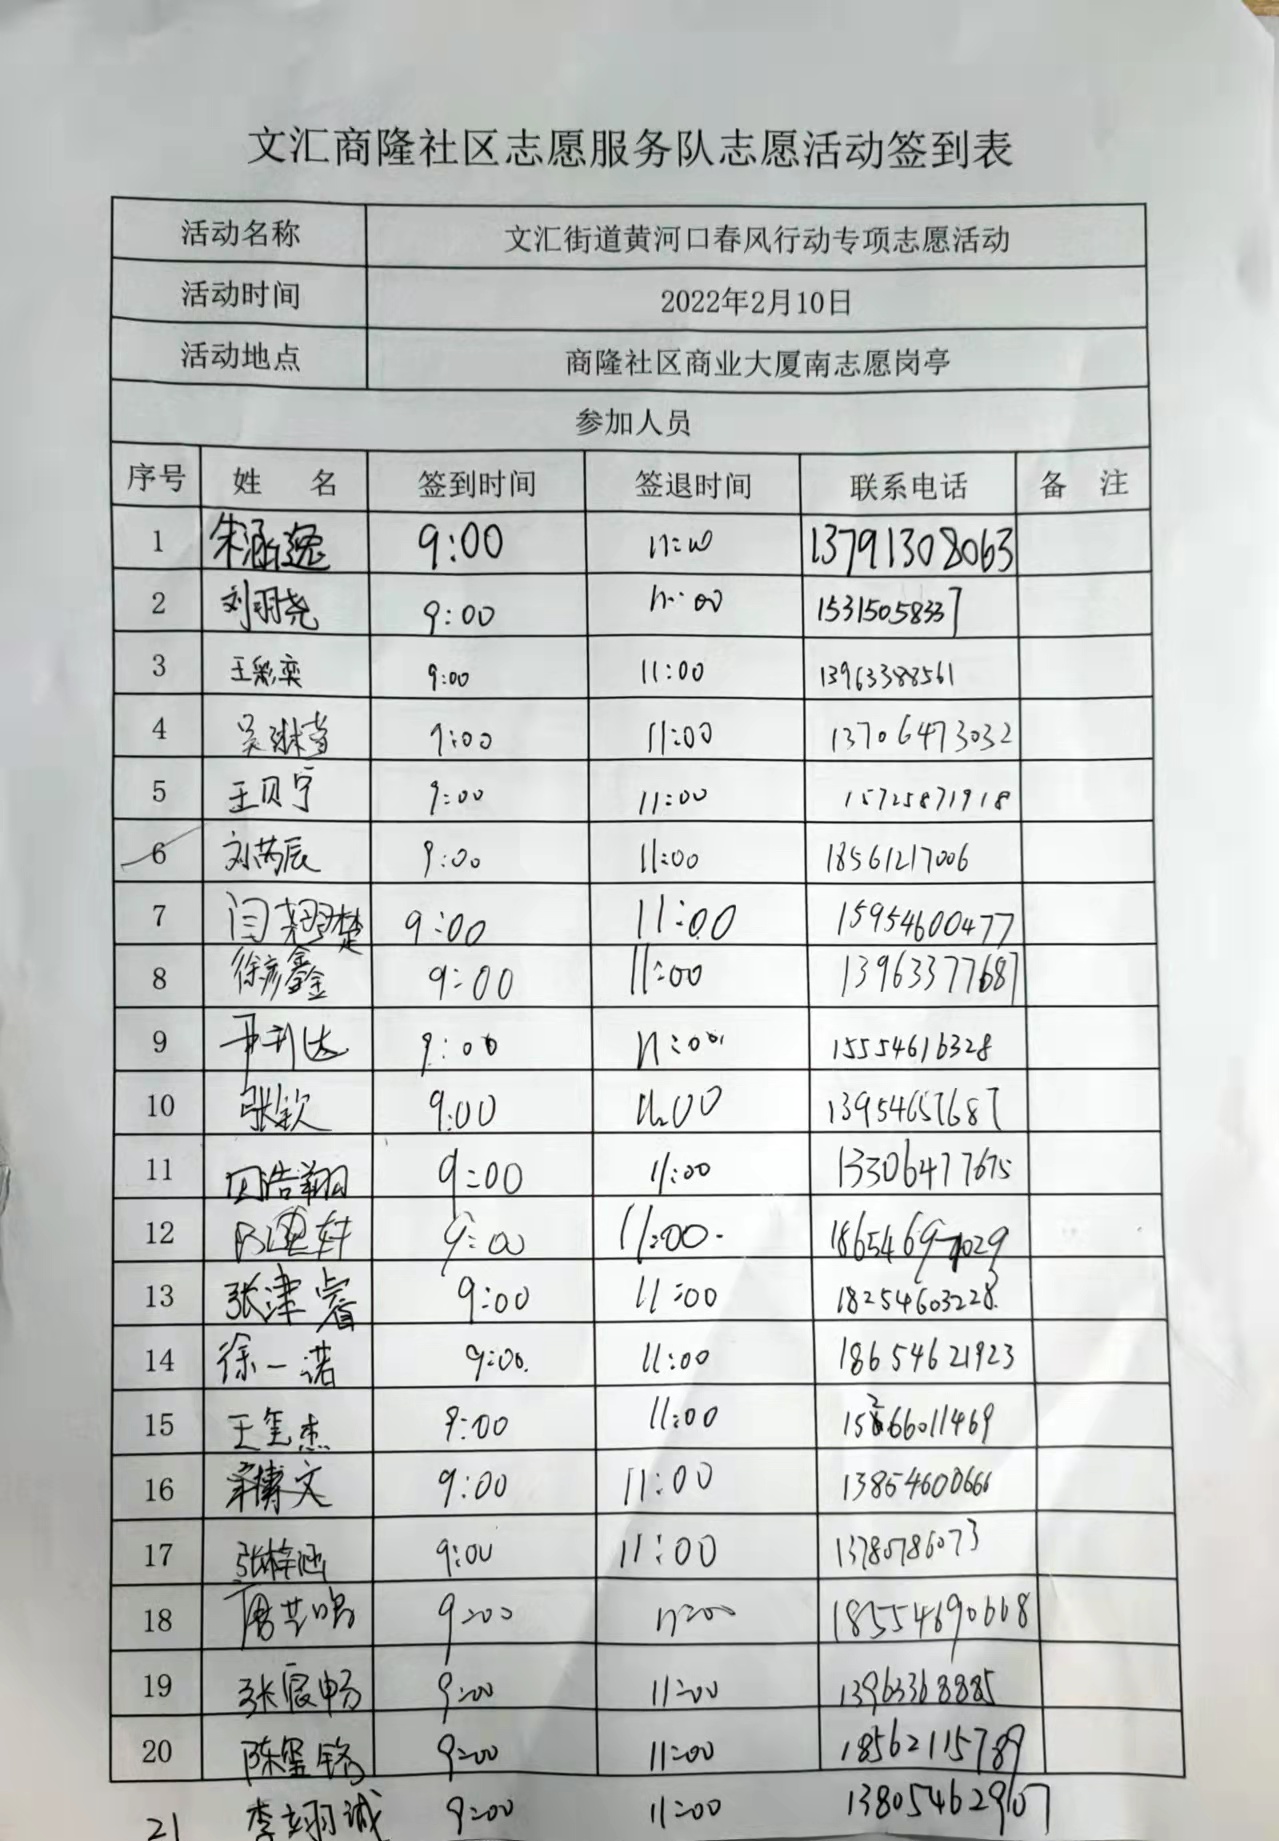 文汇商隆社区志愿服务队志愿活动签到表
活动名称 文汇街道黄河口春风行动专项志愿活动
活动时间 2022年2月10日
活动地点 商隆社区商业大厦南志愿岗亭
参加人员
序号 姓 名 签到时间 签退时间 联系电话 备 注
1 朱涵逸 9:00 11:00 13791308063
2 刘羽尧 9:00 11:00 15315058337
3 王彩奕 9:00 11:00 13963388561
4 吴琳 9:00 11:00 13706473032
5 王贝宁 9:00 11:00 15725871918
6 刘芮辰 9:00 11:00 18561217006
7 闫翔楚 9:00 11:00 15954600477
8 徐彦鑫 9:00 11:00 13963377687
9 9:00 11:00 15554616328
10 张钦 9:00 11:00 13954657687
11 浩翔 9:00 11:00 13306477675
12 轩 9:00 11:00
13 张津睿 9:00 11:00 18254603228
14 徐一诺 9:00 11:00 18654621923
15 王玺杰 9:00 11:00 15266011469
16 博文 9:00 11:00 13854600666
17 张梓涵 9:00 11:00 13780786073
18 9:00 11:00 18554690668
19 张宸畅 9:00 11:00 13963368885
20 陈玺铭 9:00 11:00 18562115789
21 李翊诚 9:00 11:00 13805462907